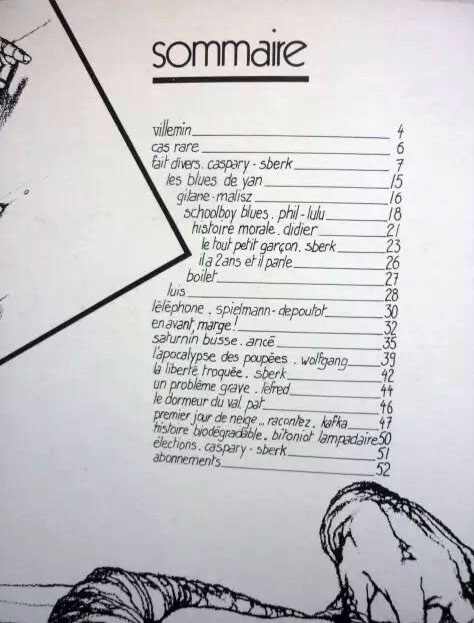 sommaire
villemin 4
cas rare 6
fait divers. caspary - sberk 7
les blues de yan 15
gitane - malisz 16
schoolboy blues. phil - lulu 18
histoire morale. didier 21
le tout petit garçon. sberk 23
il a 2 ans et il parle 26
boilet 27
luis 28
téléphone. spielmann - depoutot 30
en avant, marge! 32
saturnin busse. ancé 35
l'apocalypse des poupées. wolfgang 39
la liberté troquée. sberk 42
un problème grave. lefred 44
le dormeur du val. pat 46
premier jour de neige... racontez. kafka 47
histoire biodégradable. bitoniot lampadaire 50
élections. caspary - sberk 51
abonnements 52